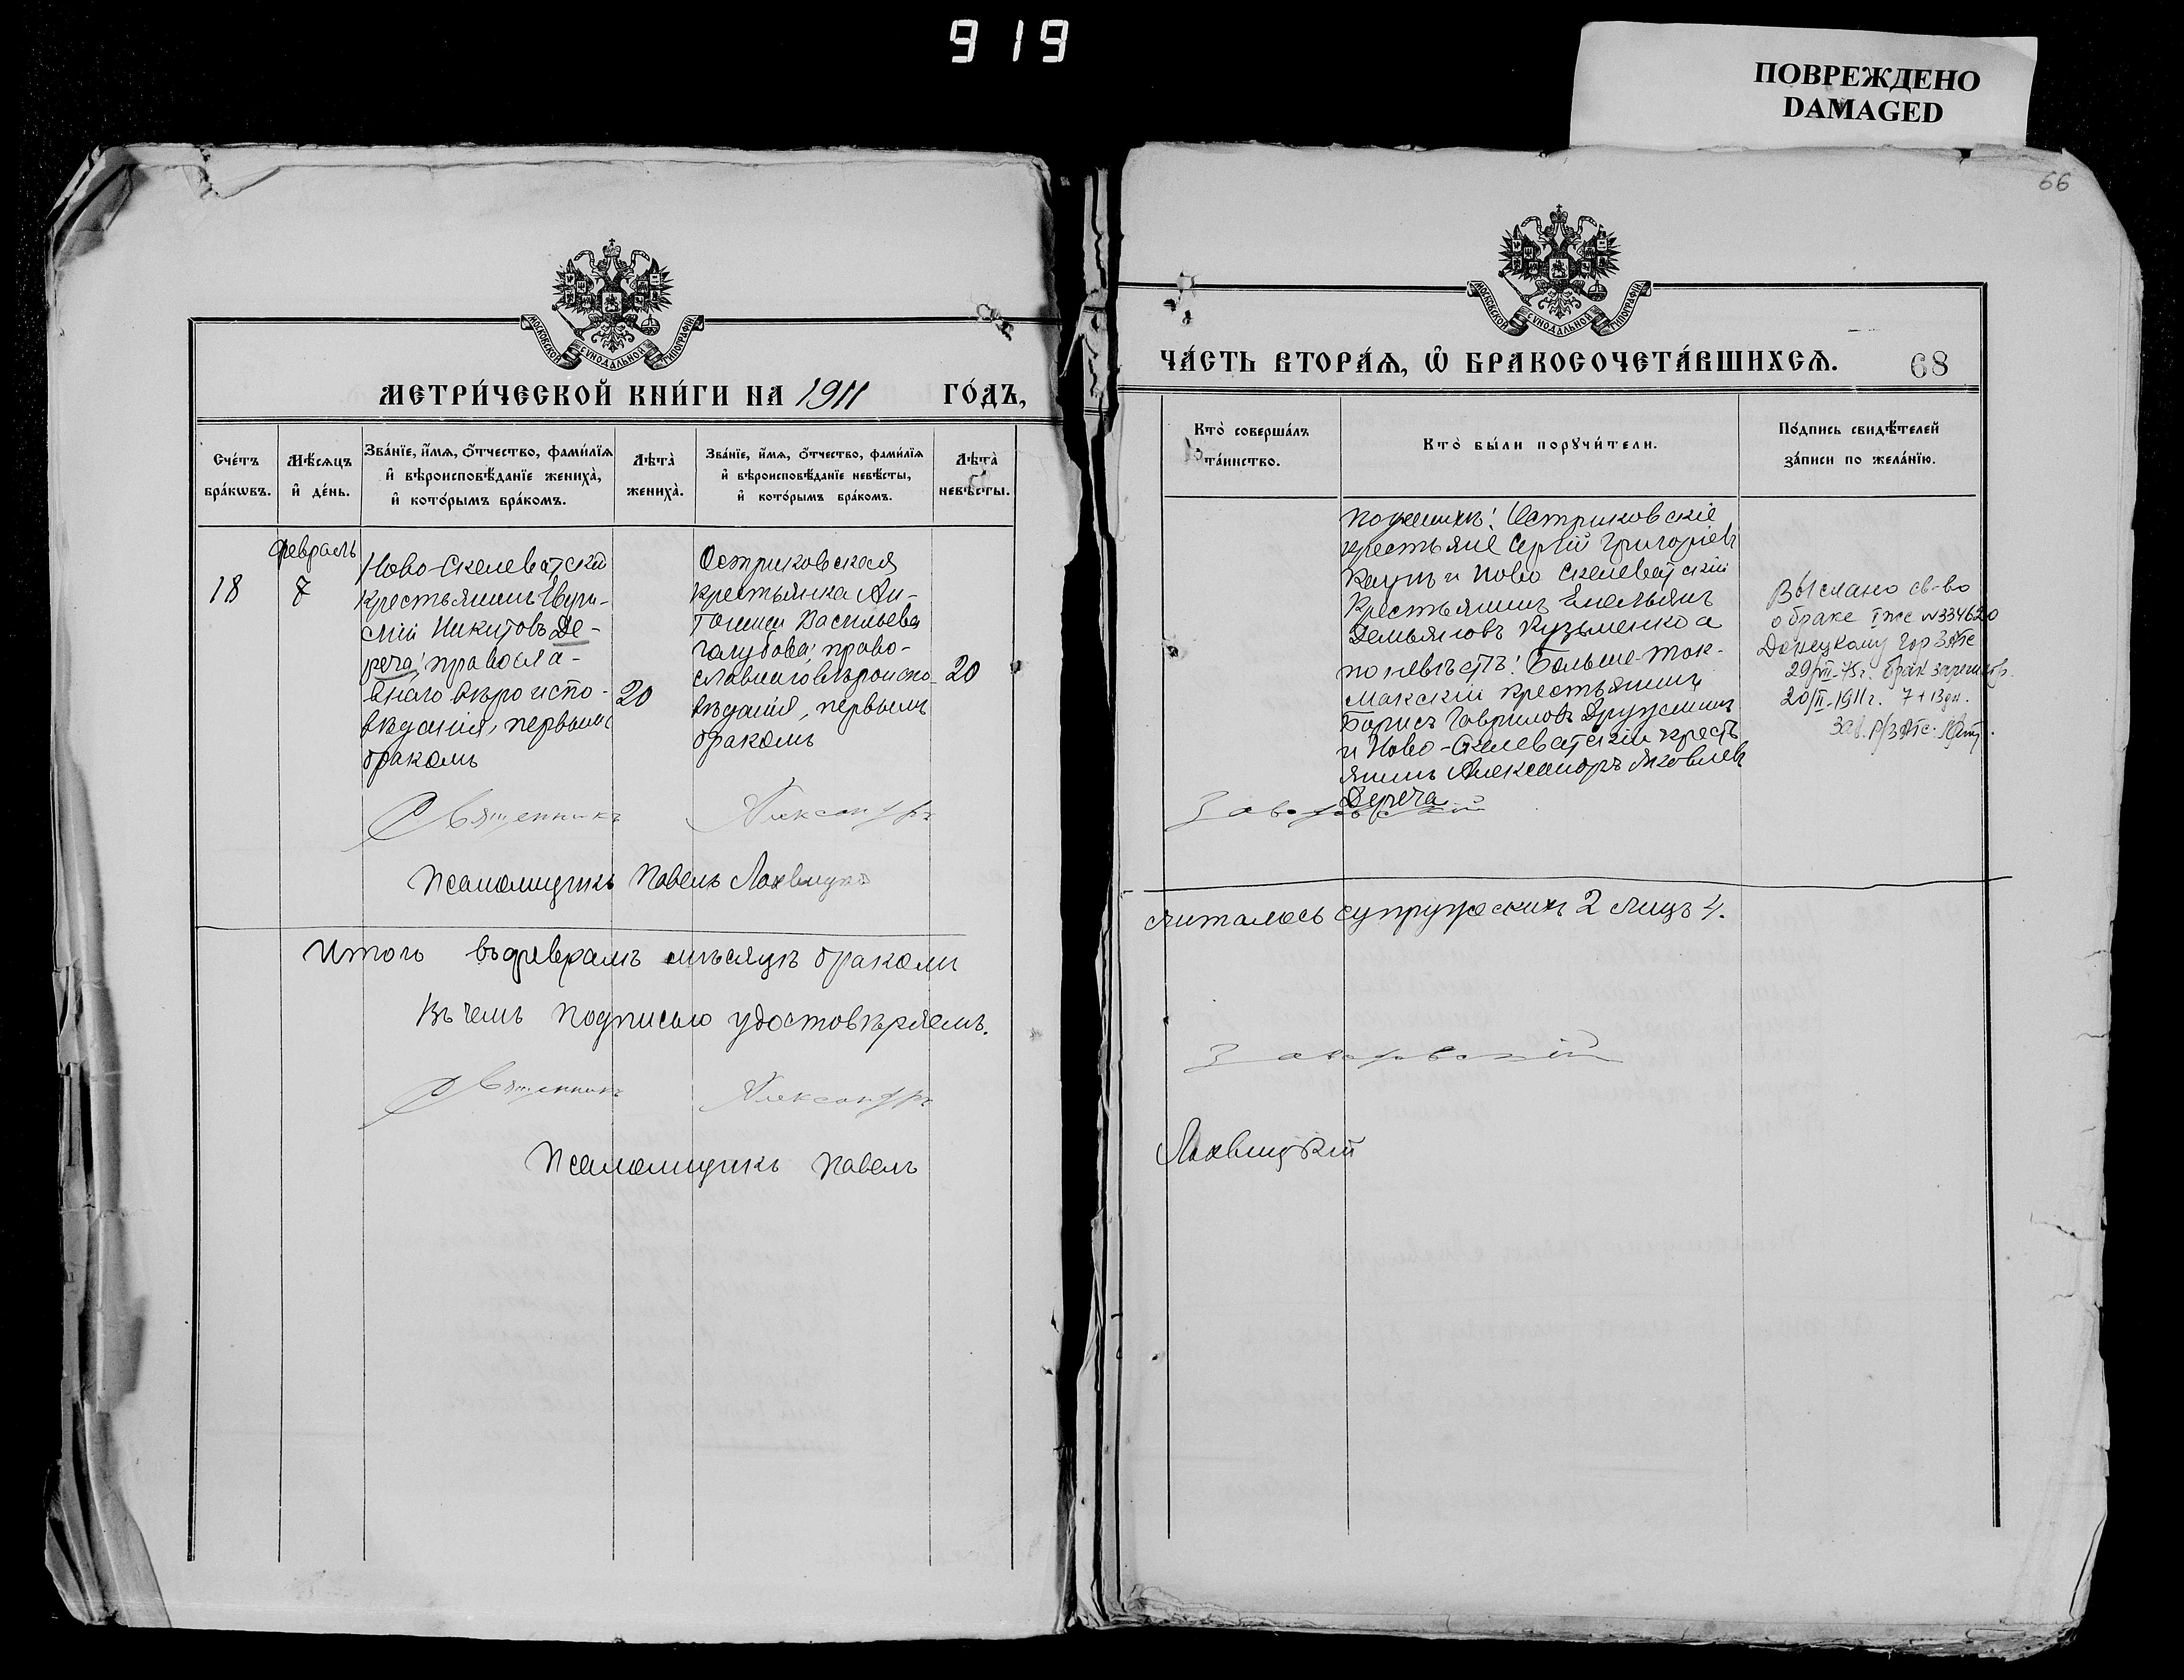 919
ПОВРЕЖДЕНО
DAMAGED
66
МОСКОВСКОЙ СѴНОДАЛЬНОЙ ТИПОГРАФІИ
МЕТРИ́ЧЕСКОЙ КНИ́ГИ НА 1911 ГО́ДЪ,
Сче́тъ бра́кѡвъ.
Мѣ́сѧцъ и҆ де́нь.
Зва́нїе, и҆́мѧ, ѻ҆́тчество, фами́лїѧ
и҆ вѣроисповѣ́данїе жениха̀,
и҆ кото́рымъ бра́комъ.
Лѣта̀ жениха̀.
Зва́нїе, и҆́мѧ, ѻ҆́тчество, фами́лїѧ
и҆ вѣроисповѣ́данїе невѣ́сты,
и҆ кото́рымъ бра́комъ.
Лѣта̀ невѣ́сты.
18
февраль
7
Ново-Скелеватскій
крестьянинъ Евѳи-
мій Никитовъ Де-
реча; правосла-
внаго вѣроиспо-
вѣданія, первымъ
бракомъ
20
Остриковская
крестьянка Ан-
тонина Васильева
Голубова; право-
славнаго вѣроиспо-
вѣданія, первымъ
бракомъ
20
Священникъ Александръ
Псаломщикъ Павелъ Лохвицкій
Итого въ февралѣ мѣсяцѣ браком
Въ чемъ подписью удостовѣряемъ.
Священникъ Александръ
Псаломщикъ Павелъ
МОСКОВСКОЙ СѴНОДАЛЬНОЙ ТИПОГРАФІИ
ЧА́СТЬ ВТОРА́Ѧ, Ѽ БРАКОСОЧЕТА́ВШИХСѦ.
68
Кто̀ соверша́лъ
та́инство.
Кто̀ бы́ли порꙋчи́тели.
По́дпись свидѣ́телей
за́писи по жела́нїю.
По женихѣ: Остриковскіе
крестьяне Сергій Григорьевъ
и Ново Скелеватскій
Крестьянинъ Емельянъ
Демьяновъ Кузьменко а
по невѣстѣ: Больше-Ток-
макскій крестьянинъ
Борисъ Гавриловъ Дружининъ
и Ново-Скелеватскій кресть
янинъ Александръ Яковлевъ
Дереча
Выслано св-во
о браке № 334620
Донецкому гор ЗАГС
29/VII-75г. брак зарегистр.
20/II-1911г. 7+13дн.
Зав. Р/ЗАГС
Заворовскій
считалось супружескихъ 2 лицъ 4.
Заворовскій
Лохвицкій